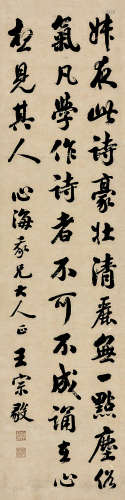 妹夜此诗豪壮清丽无一點塵俗
氣凡學作詩者不可不成誦在心
想見其人
心海豪兄大人正 王宗敬